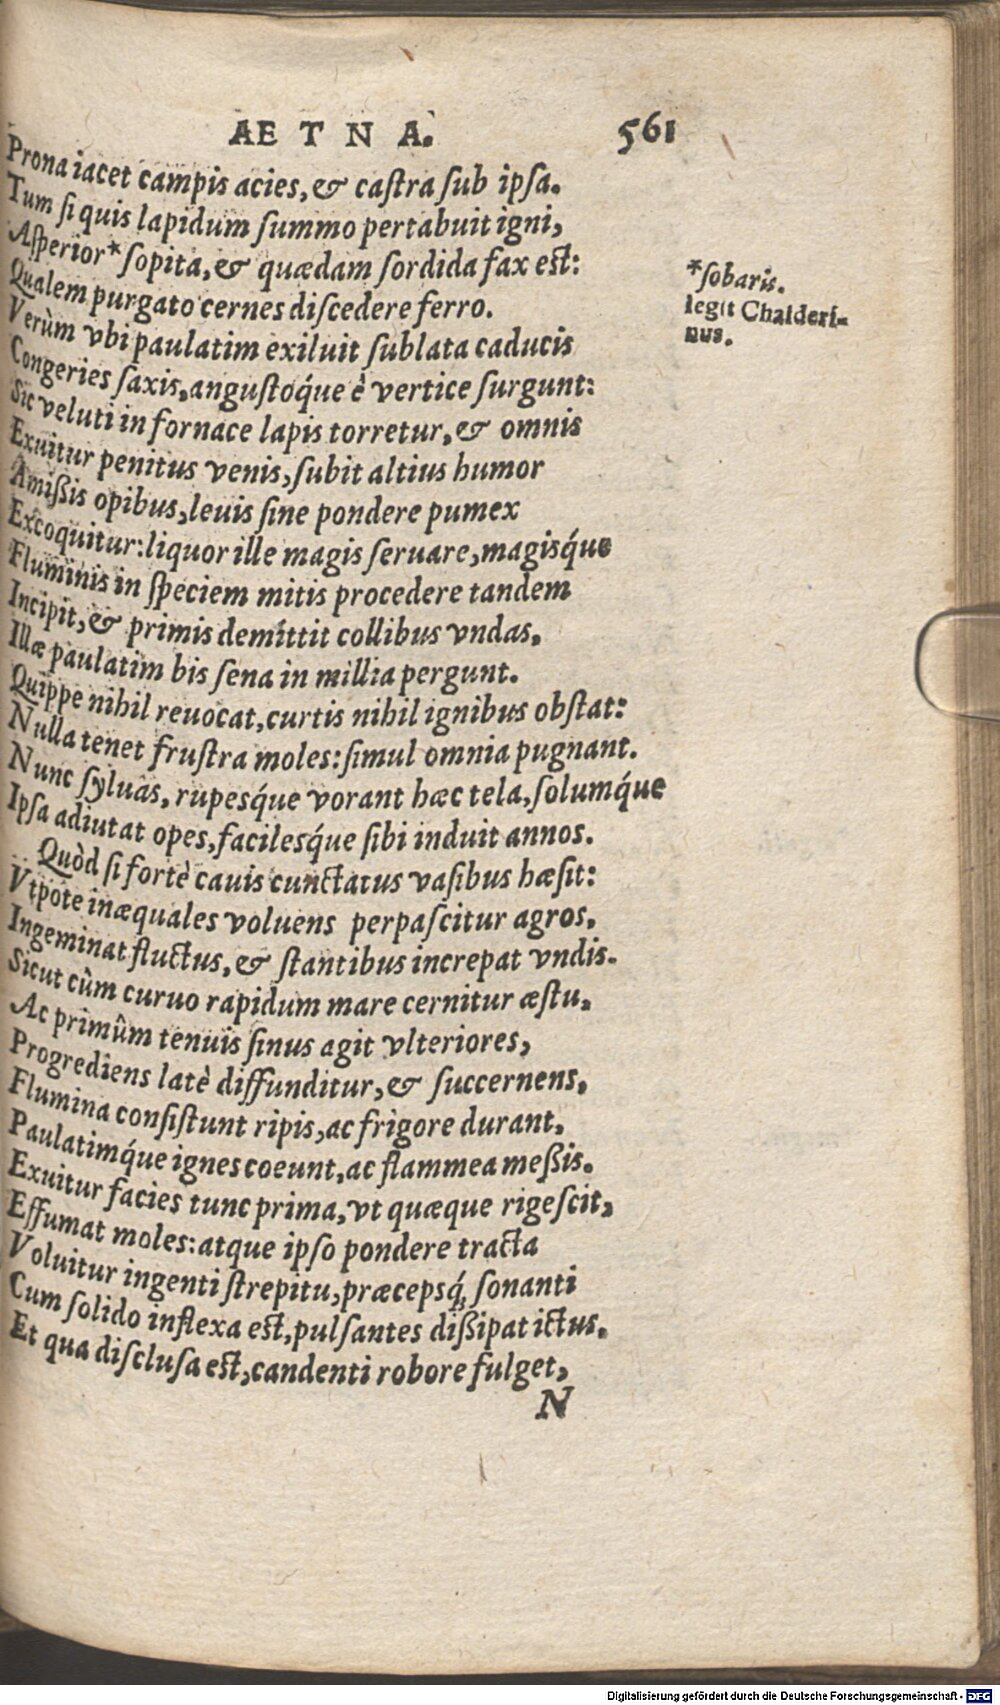 AETNA. 561
Prona iacet campis acies, & castra sub ipsa.
Tum si quis lapidum summo pertabuit igni,
Asperior* sopita, & quædam sordida fax est:
*sobaris.
legit Chalderi-
nus.
Qualem purgato cernes discedere ferro.
Verùm vbi paulatim exiluit sublata caducis
Congeries saxis, angustoq́ue è vertice surgunt:
Sic veluti in fornace lapis torretur, & omnis
Exuitur penitus venis, subit altius humor
Amißis opibus, leuis sine pondere pumex
Excoquitur: liquor ille magis seruare, magisq́ue
Fluminis in speciem mitis procedere tandem
Incipit, & primis demittit collibus vndas,
Illæ paulatim bis sena in millia pergunt.
Quippe nihil reuocat, curtis nihil ignibus obstat:
Nulla tenet frustra moles: simul omnia pugnant.
Nunc syluas, rupesq́ue vorant hæc tela, solumq́ue
Ipsa adiutat opes, facilesq́ue sibi induit annos.
Quòd si fortè cauis cunctatus vasibus hæsit:
Vtpote inæquales voluens perpascitur agros,
Ingeminat fluctus, & stantibus increpat vndis.
Sicut cùm curuo rapidum mare cernitur æstu,
Ac primùm tenuis sinus agit vlteriores,
Progrediens latè diffunditur, & succernens,
Flumina consistunt ripis, ac frigore durant,
Paulatimq́ue ignes coeunt, ac flammea meßis.
Exuitur facies tunc prima, vt quæque rigescit,
Effumat moles: atque ipso pondere tracta
Voluitur ingenti strepitu, præcepsq́; sonanti
Cum solido inflexa est, pulsantes dißipat ictus.
Et qua disclusa est, candenti robore fulget,
N
Digitalisierung gefördert durch die Deutsche Forschungsgemeinschaft - DFG